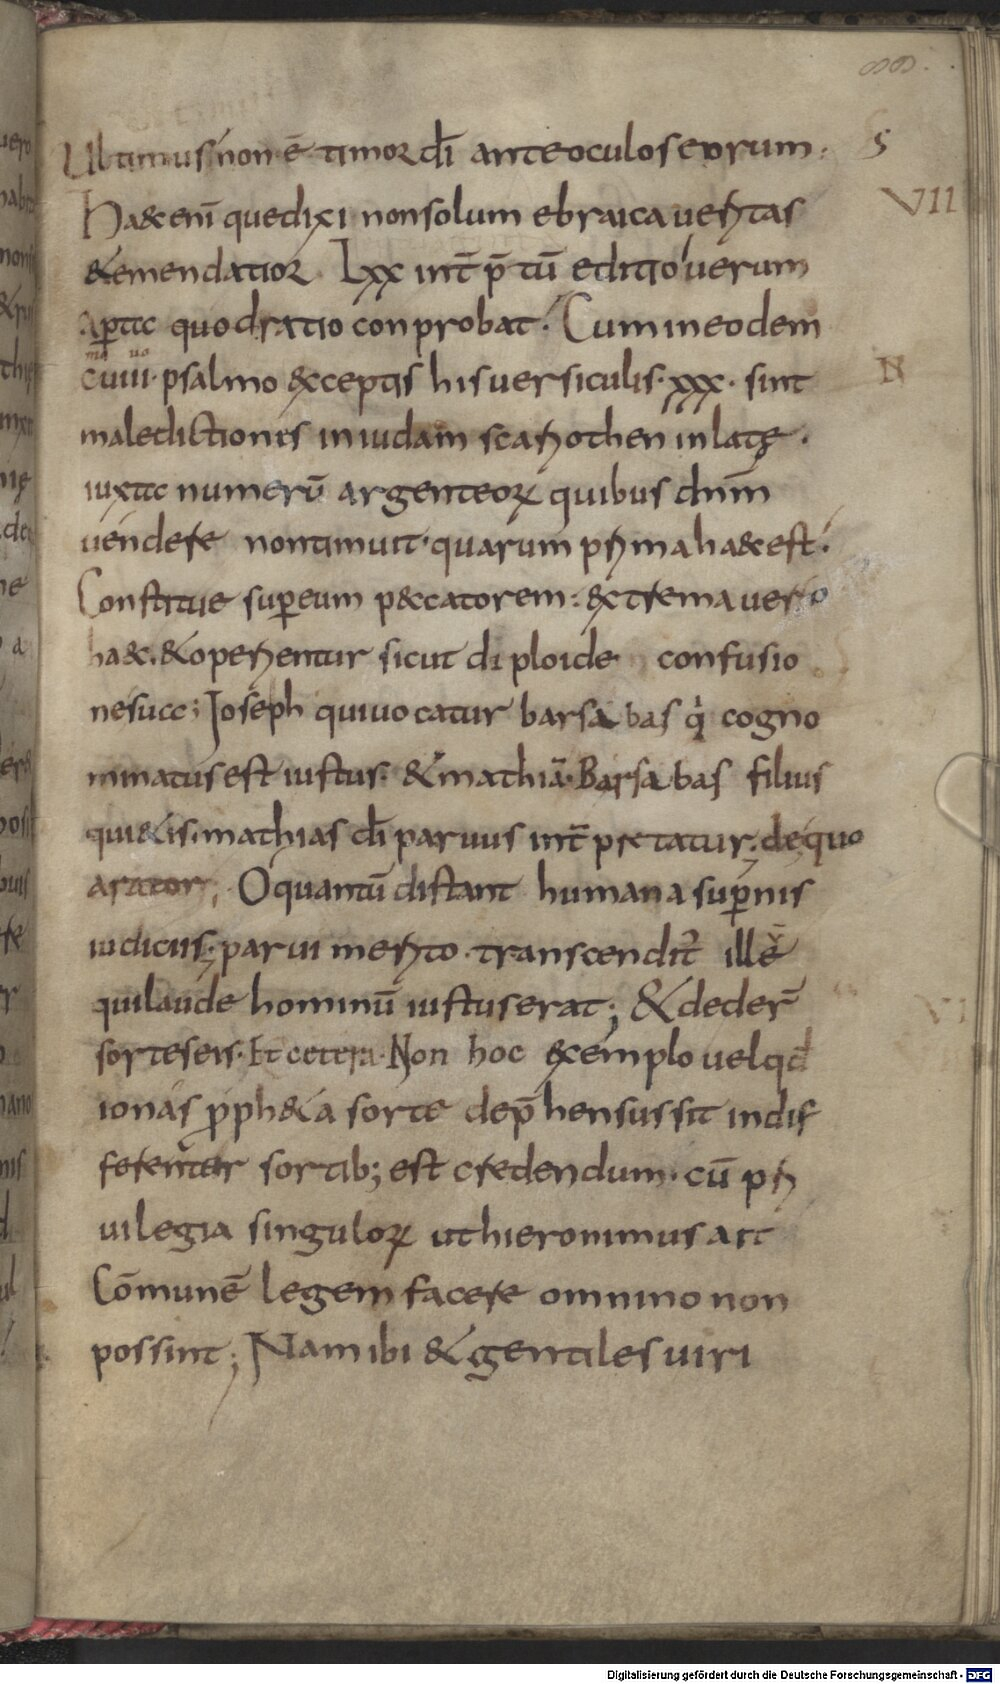 88.
Ultimus non ē timor dī ante oculos eorum.
S
Haec eni que dixi non solum ebraica ueritas
VII
& emendatior. Lxx int̄p̄tū editio uerum
aperte quod ratio conprobat. Cum in eodem
cuiii. psalmo exceptis his uersiculis. xxx. sint
ma uo
N
maledictiones in iudam scariothen inlatę.
iuxta numerū argenteoꝝ quibus dnm̄
uendere non timuit. quarum prima haec est.
Constitue super eum peccatorem: extrema uero
haec. & operientur sicut diploide confusio
ne sua; Ioseph qui uocatur barsabas q̇ cogno
minatus est iustus. & mathiā. Barsabas filius
quietis. mathias dī paruus int̄pretatur; de quo
arator; O quantū distant humana supernis
iudiciis; parui merito. transcendit᷑ ille
qui laude hominū iustus erat; & deder̄
sortes eis. Et cetera. Non hoc exemplo uel qđ
ionas ꝓpheta sorte dep̄hensus sit indif
ferenter sortib; est credendum. cū pri
uilegia singuloꝝ ut hieronimus ait
Cōmunē legem facere omnino non
possint; Nam ibi & gentiles uiri
Digitalisierung gefördert durch die Deutsche Forschungsgemeinschaft - DFG